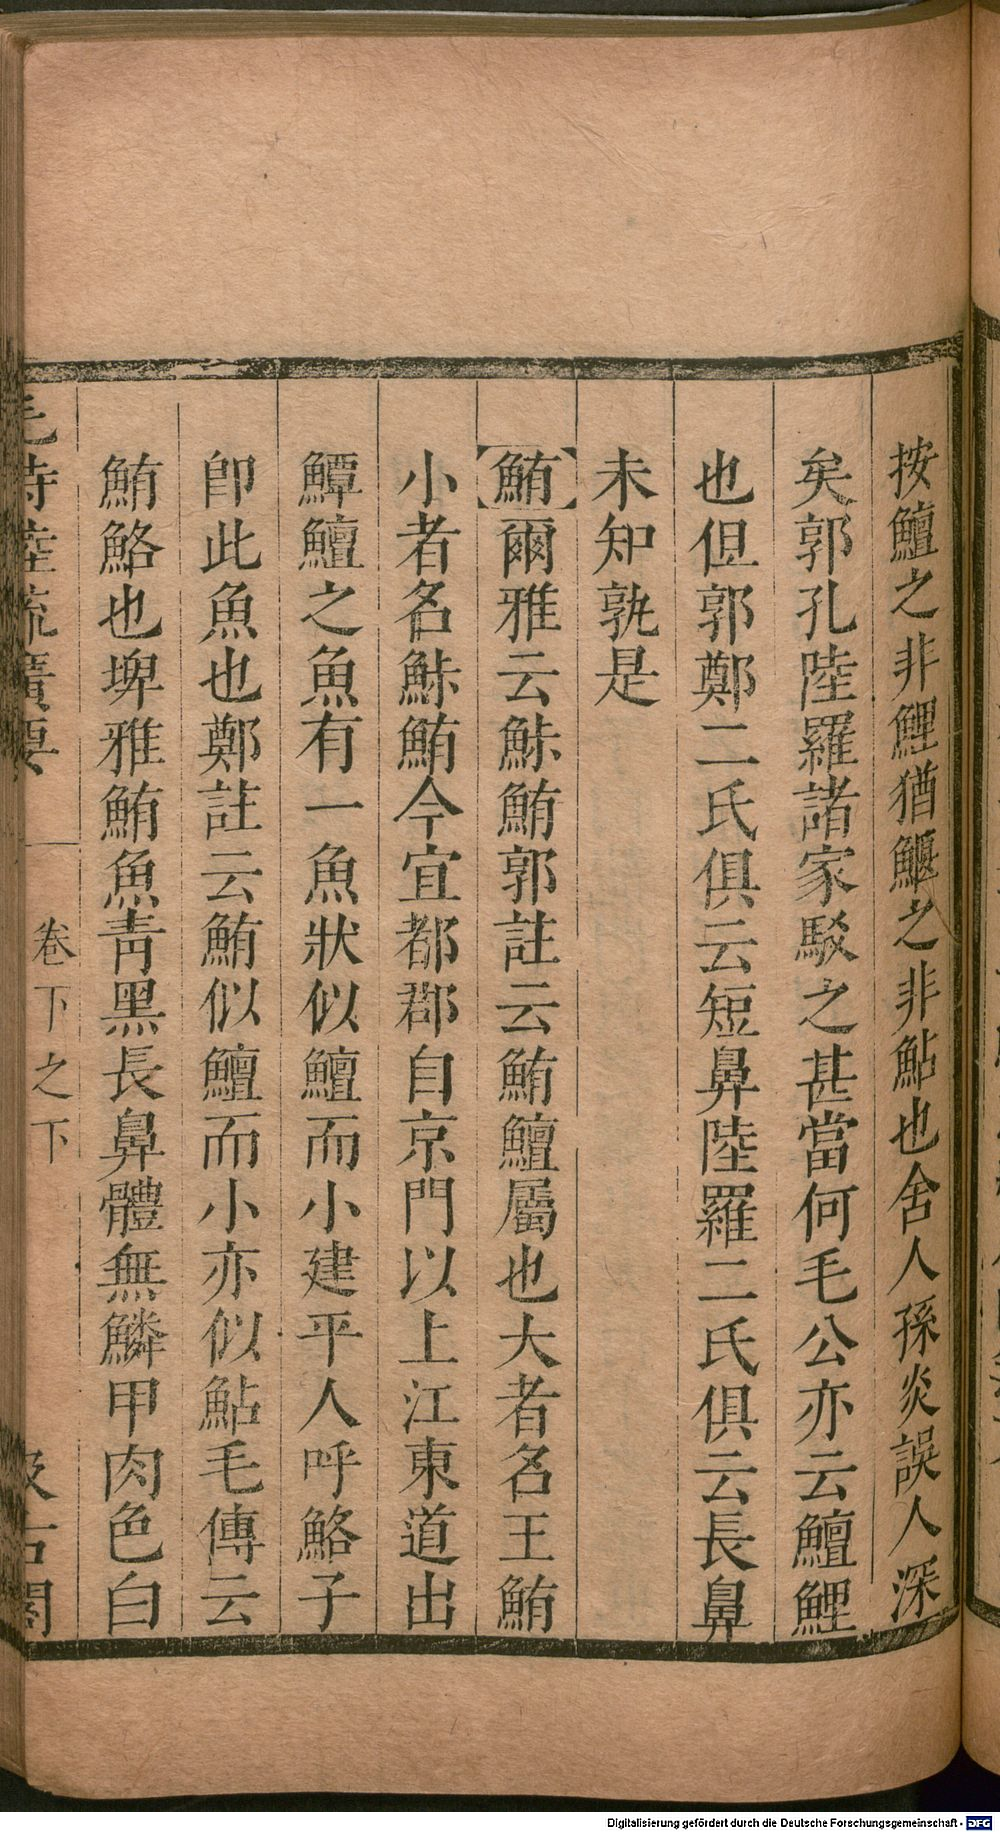 按鱣之非鯉猶鰋之非鮎也舍人孫炎誤人深
矣郭孔陸羅諸家駁之甚當何毛公亦云鱣鯉
也但郭鄭二氏俱云短鼻陸羅二氏俱云長鼻
未知孰是
鮪爾雅云鮛鮪郭註云鮪鱣屬也大者名王鮪
小者名鮛鮪今宜都郡自京門以上江東道出
鱏鱣之魚有一魚狀似鱣而小建平人呼鮥子
卽此魚也鄭註云鮪似鱣而小亦似鮎毛傳云
鮪鮥也埤雅鮪魚青黑長鼻體無鱗甲肉色白
毛詩陸疏廣要 卷下之下 汲古閣
Digitalisierung gefördert durch die Deutsche Forschungsgemeinschaft - DFG